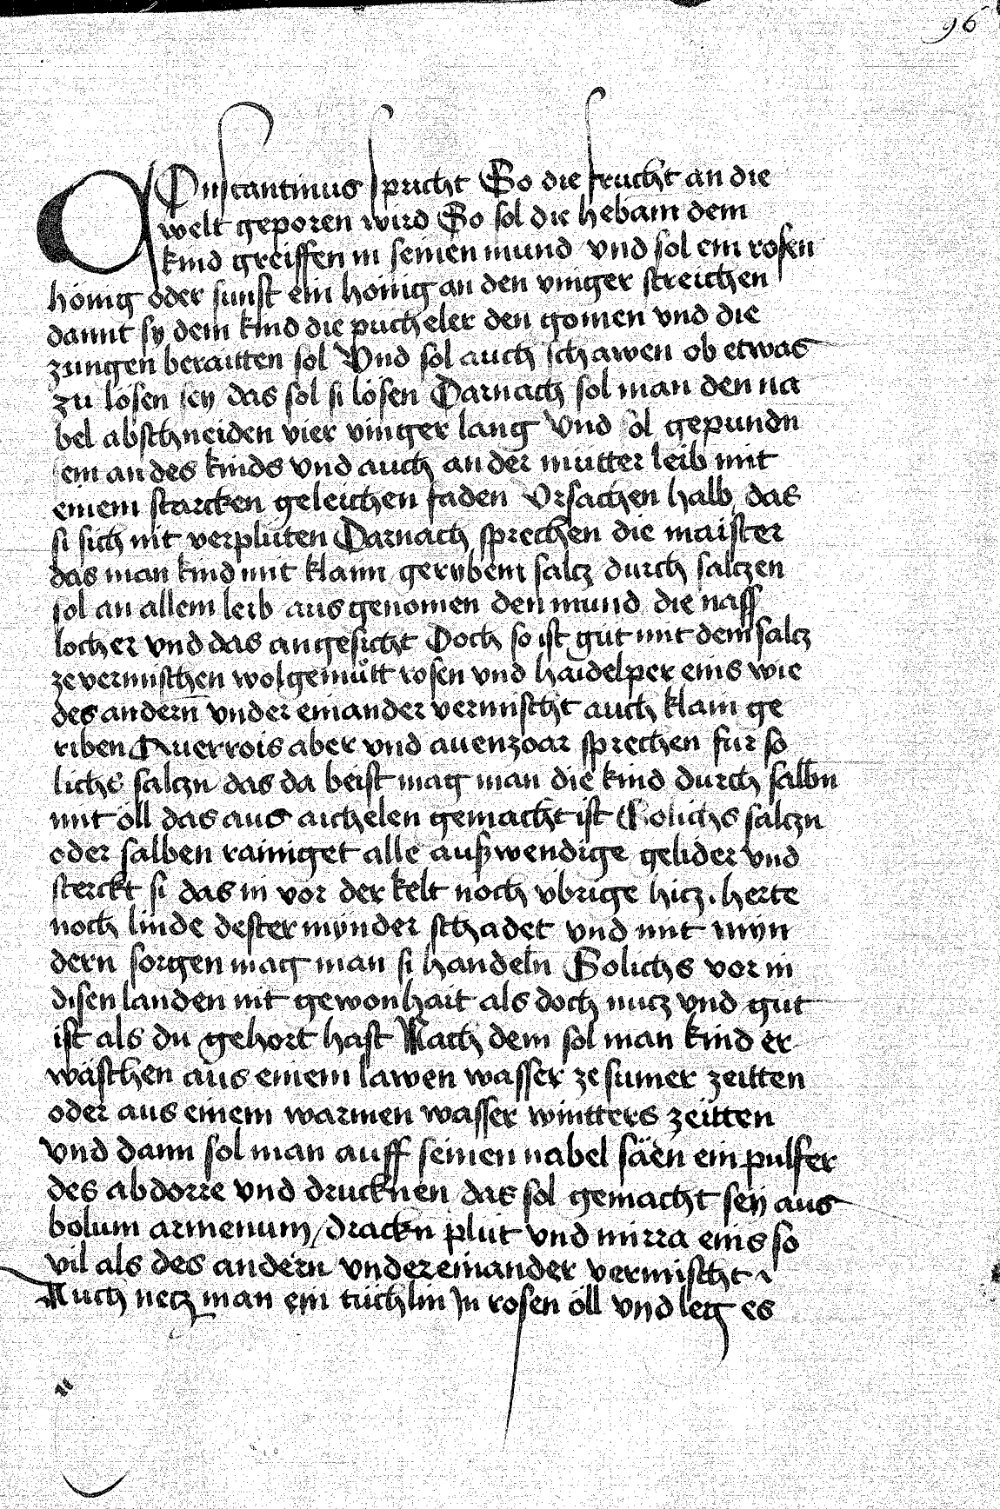 96
COnstantinus spricht So die frucht an die
welt geporen wird So sol die hebam dem
kind greiffen in seinen mund vnd sol ein rosen
hönig oder sunst ein hönig an den vinger streichen
damit sy dem kind die pucheler den gomen vnd die
zungen beraitten sol Vnd sol auch schawen ob etwas
zu lösen sey das sol si lösen Darnach sol man den na
bel abschneiden vier vinger lang Vnd sol gepundn
ein an des kinds vnd auch an der mutter leib mit
einem starcken geleichen faden Vrsachen halb das
si sich nit verplüten Darnach sprechen die maister
das man kind mit klann geribem salcz durch salczen
sol an allem leib aus genomen den mund die nass
locher vnd das angesicht Doch so ist güt mit dem salcz
ze vermischen wolgemůtt rosen vnd haidelper eins wie
des andern vnder einander vermischt auch klain ge
riben Auerrois aber vnd auenzoar sprechen fur so
liche salczn das da beist mag man die kind durch salbn
mit öll das aus aichelen gemacht ist Solichs salczn
oder salben rainiget alle außwendige gelider vnd
sterckt si das in vor der kelt noch vbrige hicz herte
noch linde dester mynder schadet vnd mit myn
dern sorgen mag man si handeln Solichs vor in
disen landen nit gewonhait als doch nucz vnd gut
ist als du gehort hast Nach dem sol man kind er
wäschen aus einem lawen wasser ze sumer zeitten
oder aus einem warmen wasser wintters zeitten
vnd dann sol man auff seinen nabel säen ein pulfer
des abdorre vnd drucknen das sol gemacht sey aus
bolum armenum / drackn plut vnd mirra eins so
vil als des andern vnder einander vermischt
Auch necz man ein tüchlin jn rosen öll vnd leg es